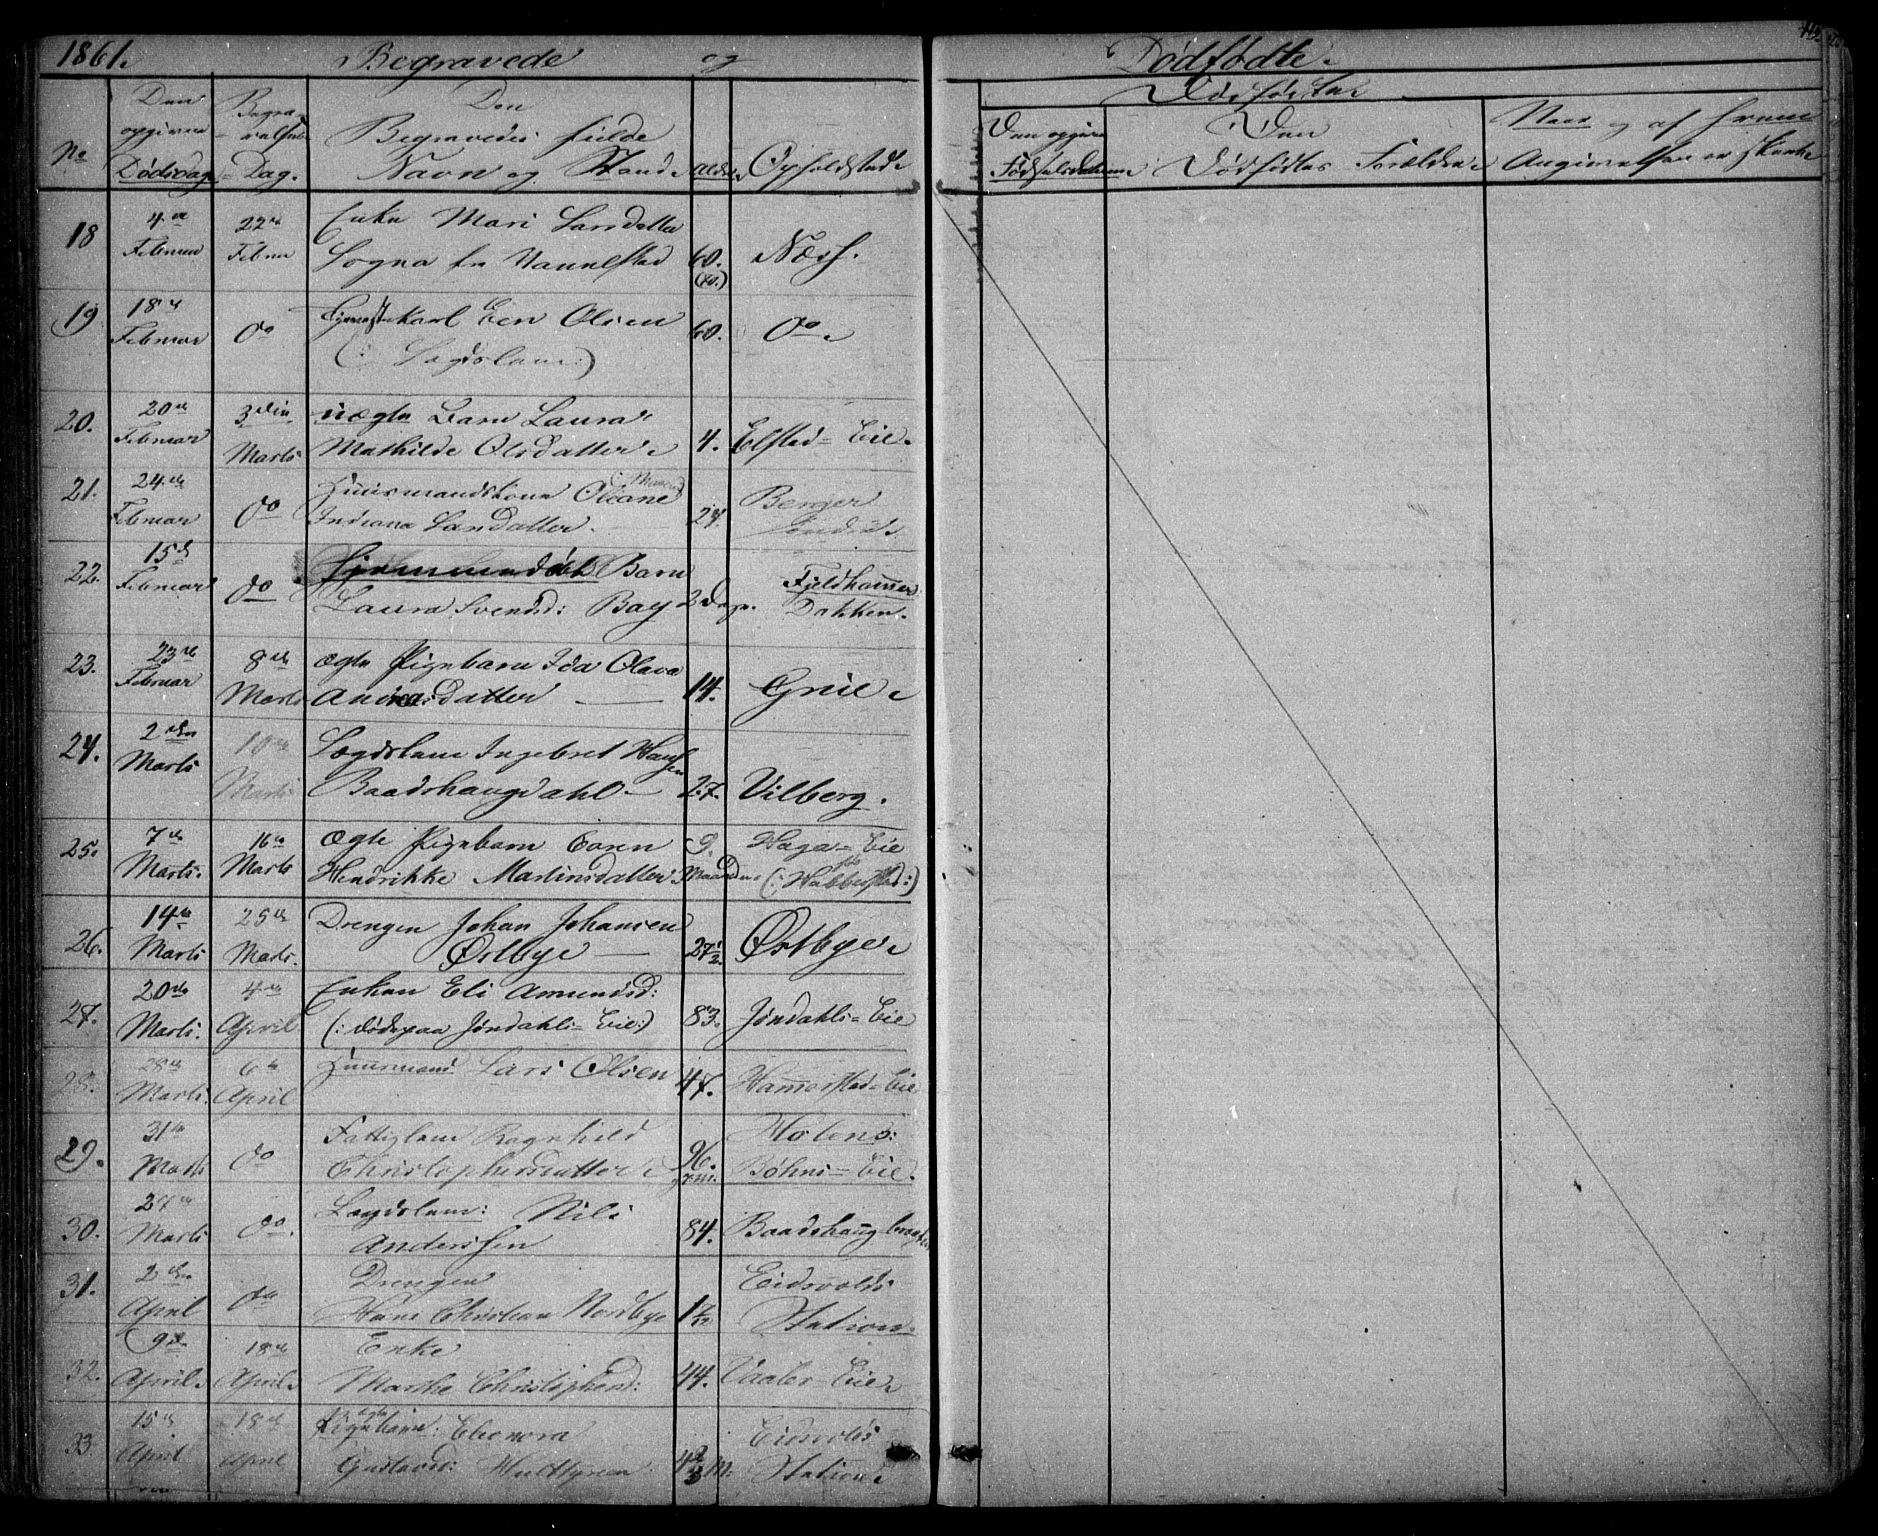 1861. Begravede og Dødfødte.
No
Den opgivne Dødsdag
Begravelses Dag.
Den Begravedes fulde Navn og Stand
Alder
Opholdsted
Dødfødte
Den opgivne Fødselsdatum
Den Dødfødtes Forældre
Naar og af hvem Angivelsen er skeet
18 4de Februar 22de Februar Enke Mari Larsdatter
Sogna fra 60. Næss.
19 18de Februar do Karl Even Olsen 60. Do
(: Lægdslem :)
20. 20de Februar 3die Marts uægte Barn Laura
Mathilde Olsdatter 4. Elstad-Eie.
21. 24de Februar do Huusmandskone Oleane
Indiana Larsdatter. 24. Berger
22. 15de Februar do Barn
Laura Svendsd: Bay 2 Dage. Fjeldhammer
Bakken.
23. 23de Februar 8de Marts ægte Pigebarn Ida Olava
Andreasdatter 14. Grue
24. 2den Marts 10de Marts Lægdslem Ingebret Hansen
Baadshaugdahl 27. Vilberg.
25. 7de Marts. 16de Marts Ægte Pigebarn Karen
Hendrikke Martinsdatter 9 Maaneder Haga-Eie
(: Habberstad :)
26. 14de Marts 25de Marts. Drengen Johan Johansen
Østbye 27½ Østbye
27. 20de Marts. 4de April Enken Eli Amundsd:
(: døde paa Jøndahls-Eie :) 83. Jøndahls-Eie
28. 28de Marts. 6te April Huusmand Lars Olsen 47. Hamerstad-Eie
29. 31te Marts do Fattiglem Ragnhild
Christophersdatter 96. Holens:
Bøhns-Eie.
30. 27de Marts do. Lægdslem: Nils
Anderssen 84. Baadshaug
31. 2den April do Drengen
Hans Christian Nordbye Eidsvolds
Station
32. 9de April 18de April Enke
Marthe Christophersd: 44. Vaaler-Eie
33 15de April 18de April Pigebarn: ægte Elenora
Gustavsd: 4⅔ M. Eidsvolds
Station